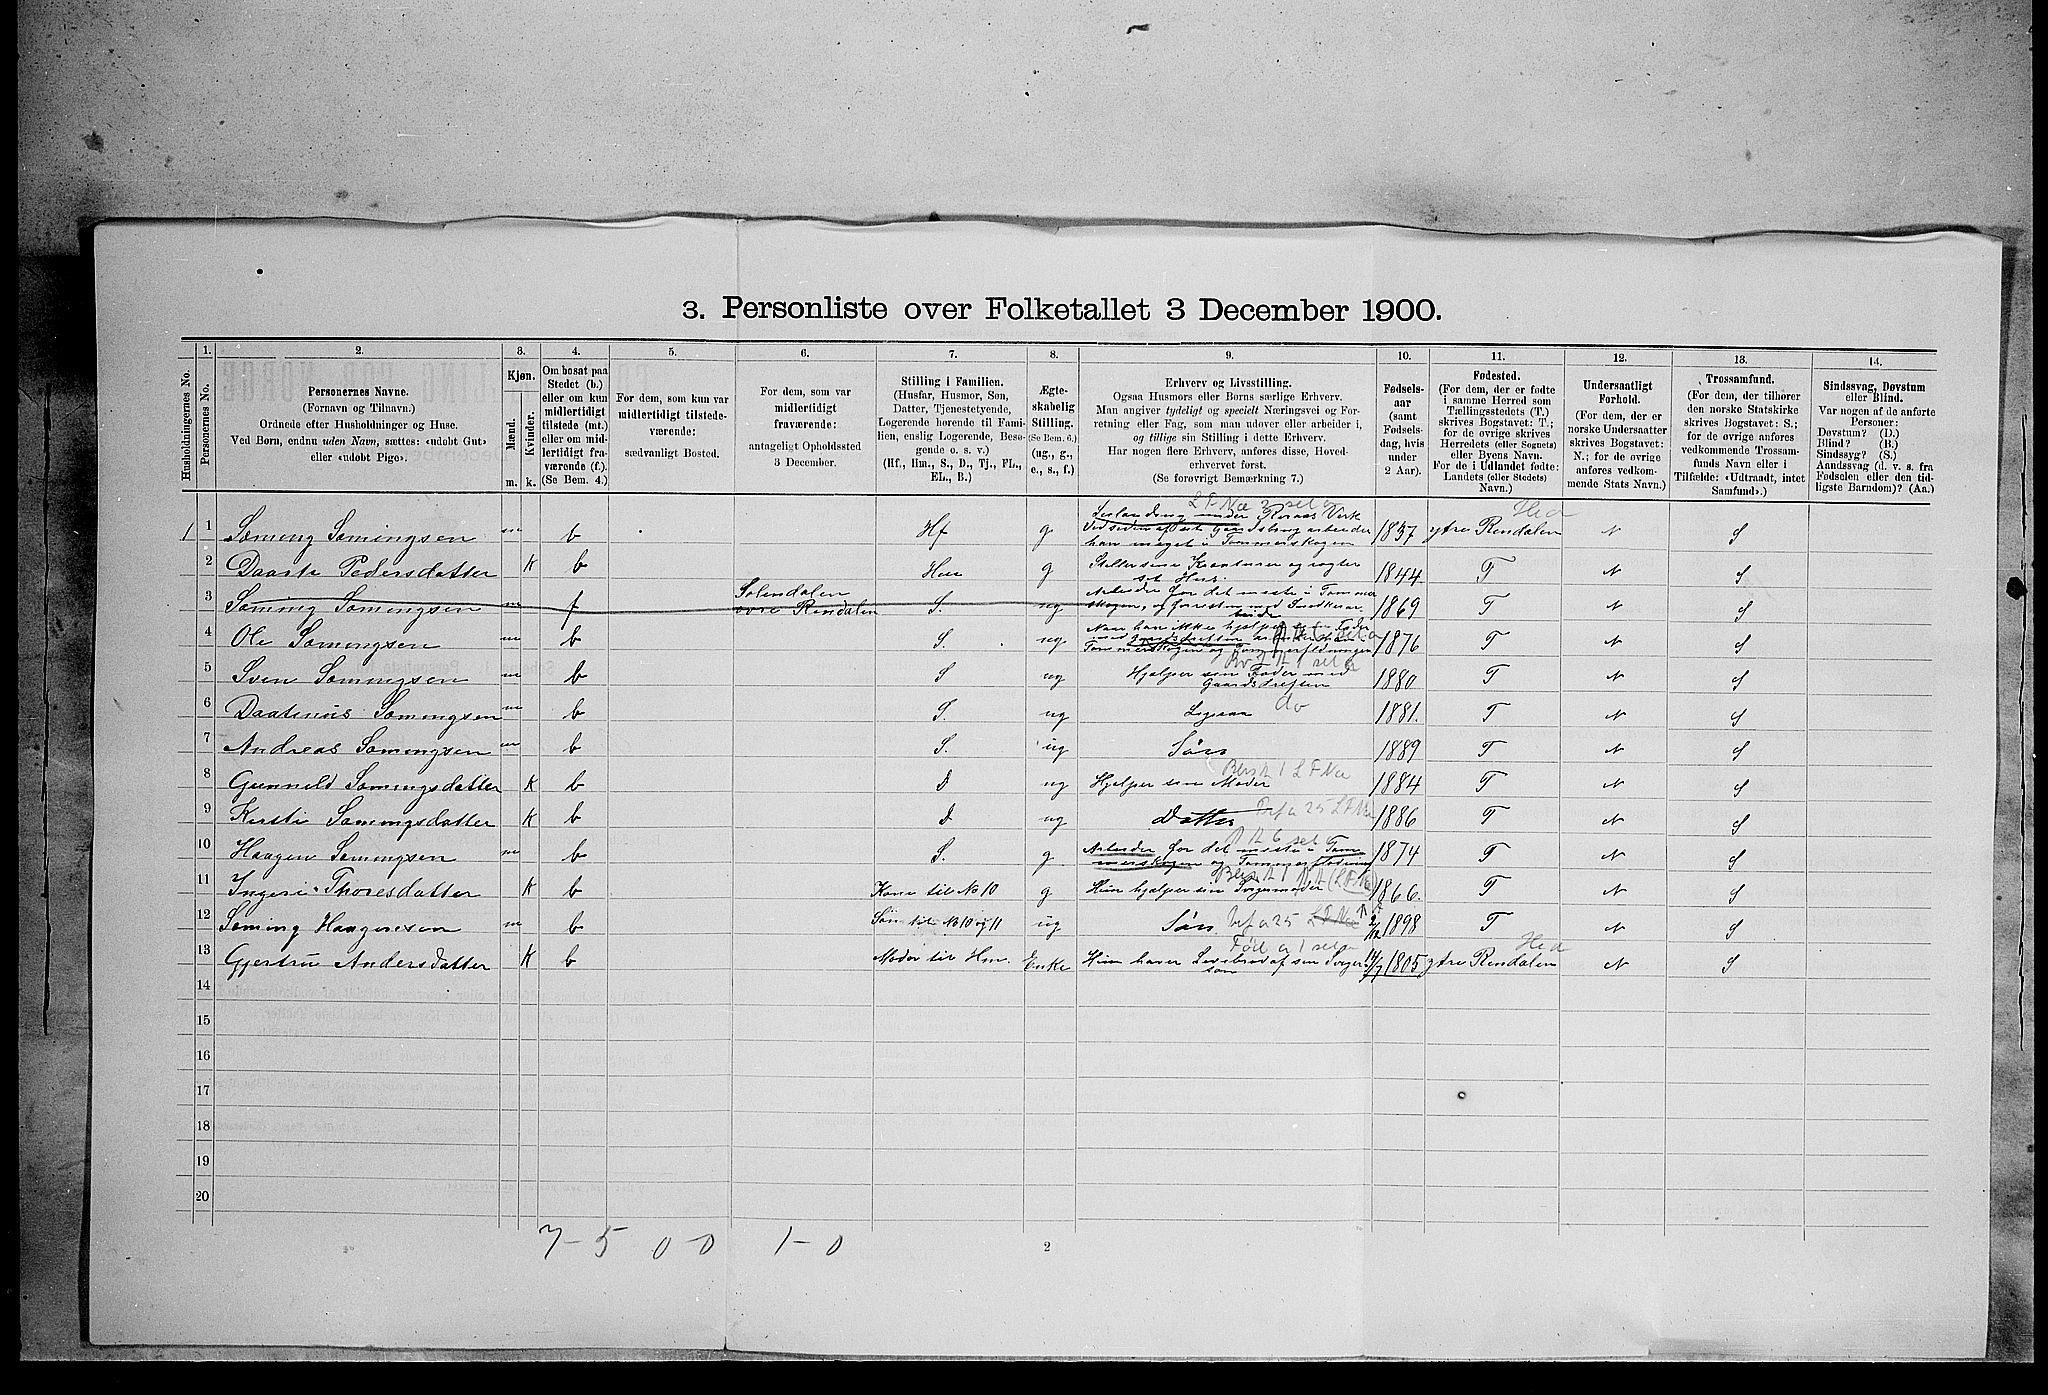 3. Personliste over Folketallet 3 December 1900.
1. 2. 3. 4. 5. 6. 7. 8. 9. 10. 11. 12. 13. 14.
Husholdningernes No.
Personernes No.
Personernes Navne.
(Fornavn og Tilnavn.)
Ordnede efter Husholdninger og Huse.
Ved Børn, endnu uden Navn, sættes: «udøbt Gut»
eller «udøbt Pige».
Kjøn.
Mænd.
Kvinder.
m. k.
Om bosat paa
Stedet (b.)
eller om kun
midlertidigt
tilstede (mt.)
eller om mid-
lertidigt fra-
værende (f.).
(Se Bem. 4.)
For dem, som kun var
midlertidigt tilstede-
værende:
sædvanligt Bosted.
For dem, som var
midlertidigt
fraværende:
antageligt Opholdssted
3 December.
Stilling i Familien.
(Husfar, Husmor, Søn,
Datter, Tjenestetyende,
Logerende hørende til Fami-
lien, enslig Logerende, Besø-
gende o. s. v.)
(Hf., Hm., S., D., Tj., FL.,
EL., B.)
Ægte-
skabelig
Stilling.
(Se Bem. 6.)
(ug., g.,
e., s., f.)
Erhverv og Livsstilling.
Ogsaa Husmors eller Børns særlige Erhverv.
Man angiver tydeligt og specielt Næringsvei og For-
retning eller Fag, som man udøver eller arbeider i,
og tillige sin Stilling i dette Erhverv.
Har nogen flere Erhverv, anføres disse, Hoved-
erhvervet først.
(Se forøvrigt Bemærkning 7.)
Fødsels-
aar
(samt
Fødsels-
dag, hvis
under
2 Aar).
Fødested.
(For dem, der er fødte
i samme Herred som
Tællingsstedets (T.)
skrives Bogstavet: T.;
for de øvrige skrives
Herredets (eller Sognets)
eller Byens Navn.
For de i Udlandet fødte:
Landets (eller Stedets)
Navn.)
Undersaatligt
Forhold.
(For dem, der er
norske Undersaatter
skrives Bogstavet:
N.; for de øvrige
anføres vedkom-
mende Stats Navn.)
Trossamfund.
(For dem, der tilhører
den norske Statskirke
skrives Bogstavet: S.;
for de øvrige anføres
vedkommende Trossam-
funds Navn eller i
Tilfælde: «Udtraadt, intet
Samfund».)
Sindssvag, Døvstum
eller Blind.
Var nogen af de anførte
Personer:
Døvstum? (D.)
Blind? (B.)
Sindssyg? (S.)
Aandssvag (d. v. s. fra
Fødselen eller den tid-
ligste Barndom)? (Aa.)
1 1 Søming Sømingsen m b Hf g 1837 ytre Rendalen N S
Hed
2 Daarte Pedersdatter K b Hm g 1844 T N S
3 Søming Sømingsen m f Sølendalen øvre Rendalen S. ug 1869 T N S
4 Ole Sømingsen m b S. ug 1876 T N S
5 Sven Sømingsen m b S ug Hjælper sin Fader med Gaardsdriften 1880 T N S
6 Daatinus Sømingsen m b S. ug Ligesaa do 1881. T N S
7 Andreas Sømingsen m b S. ug Søn 1889 T N S
8 Gunnild Sømingsdatter K b D ug Hjælper sin Moder 1884 T N S
9 Kirsti Sømingsdatter K b D ug Datter 1886 T N S
10 Haagen Sømingsen m b S. g Arbeider for det meste i Tømmerskogen og Tømmerflødning 1874 T N S
11 Ingeri Thoresdatter K b Kone til No 10 g Hun hjælper sin Svigermoder 1866. T N S
12 Søming Haagensen m b Søn til No 10 og 11 ug Søn 1898 T N S
13 Gjertru Andersdatter K b Moder til Hm. Enke 1805 ytre Rendalen N S
Hed
14
15
16
17
18
19
20
7-5 0-0 1-0
2